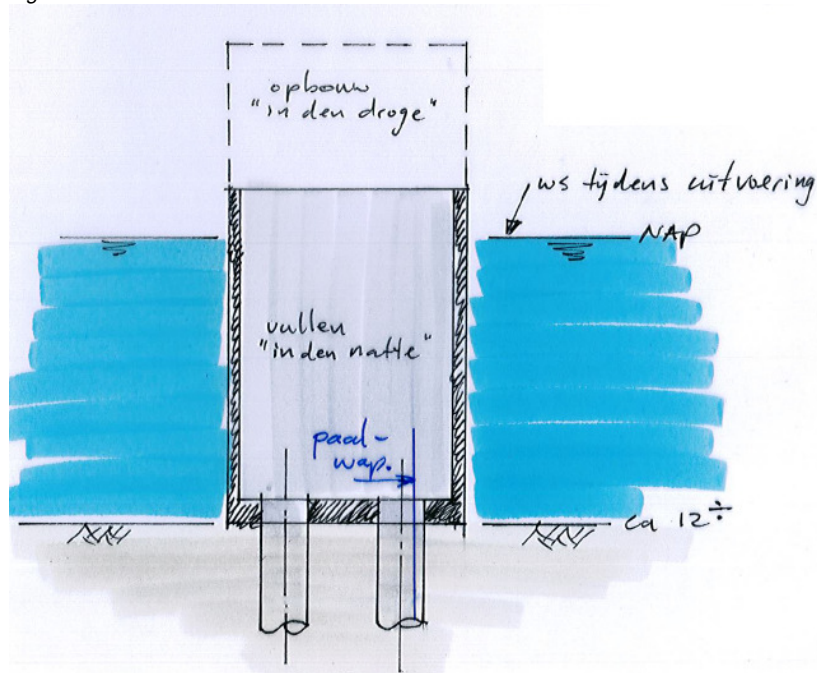 opbouw
"in den droge"
ws tijdens uitvoering
NAP
vullen
"in den natte"
paal-
wap.
ca 12 ÷